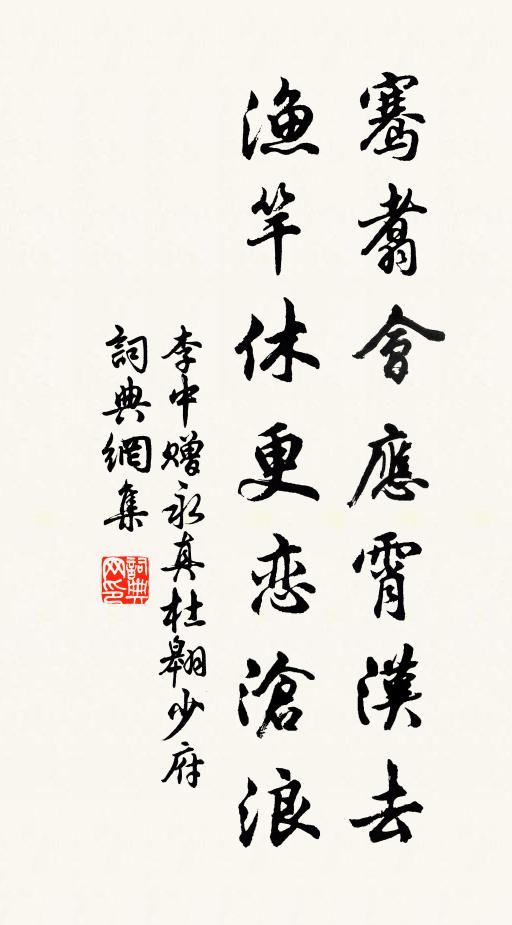 騫翥會應霄漢去
漁竿休更恋滄浪
李中贈永真杜翱少府
詞典網集
詞典网印